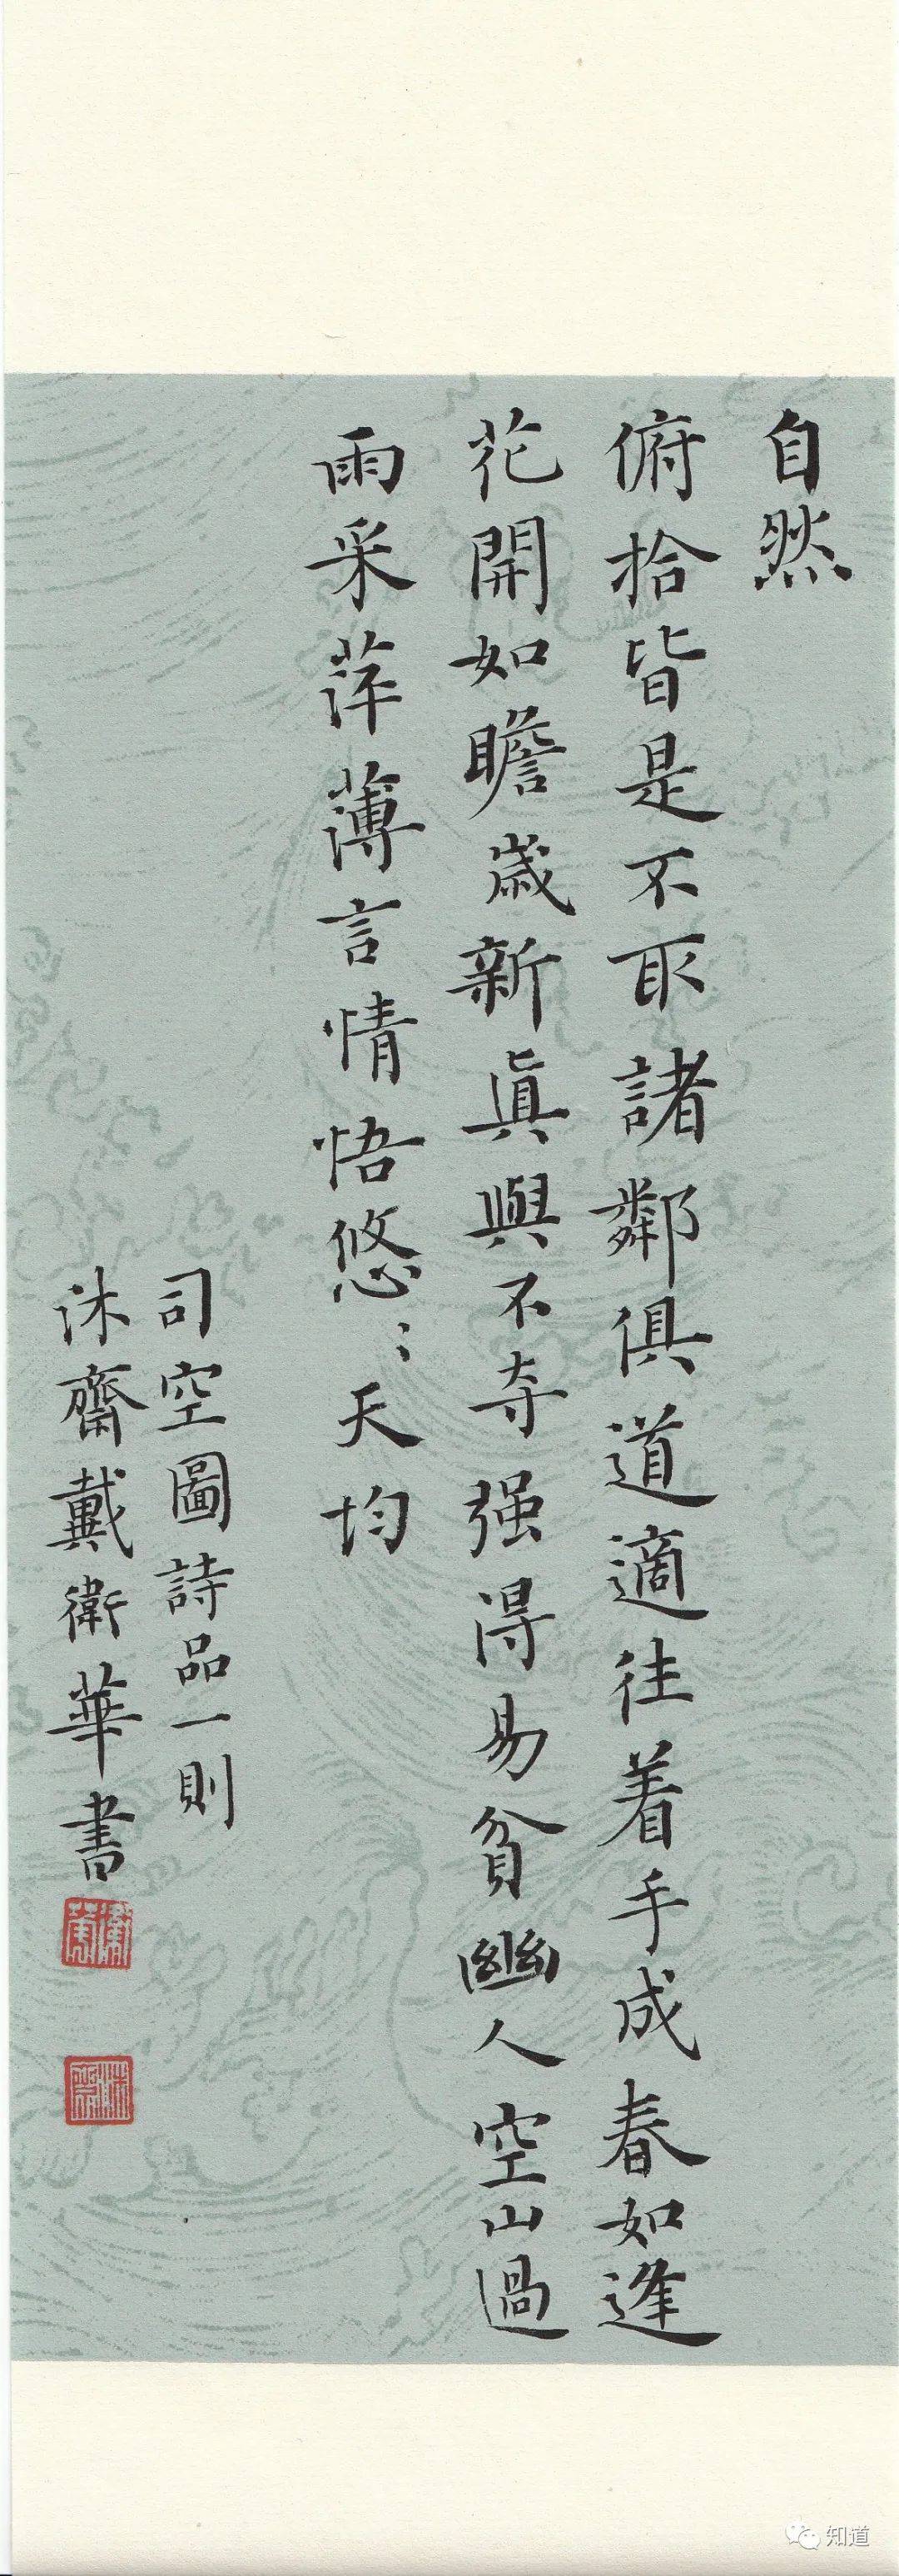 自然
俯拾皆是不取諸鄰俱道適往着手成春如逢
花開如瞻歲新真與不夺强得易貧幽人空山過
雨采萍薄言情悟悠〻天均
司空圖詩品一則
沐齋戴衛華書
沐齋
知道